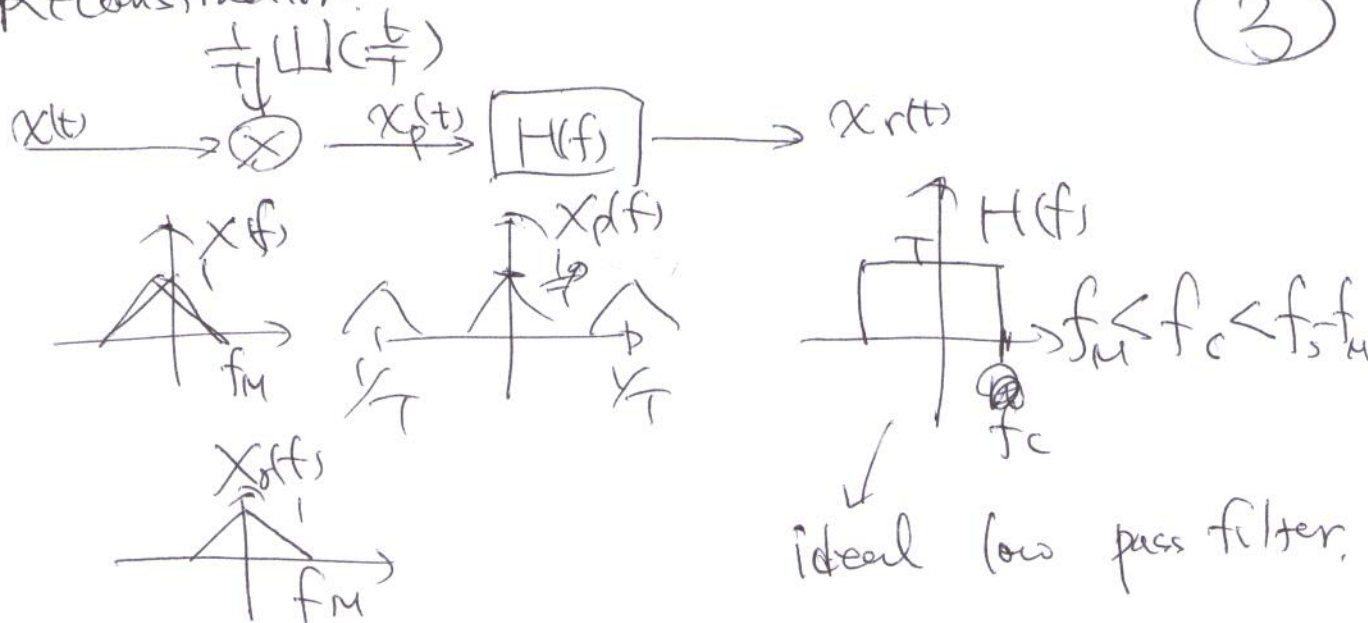 Reconstruction.
3
1/T Ш(t/T)
x(t) X xp(t) H(f) xr(t)
X(f) 1 fM
Xp(f) 1/T 1/T 1/T
H(f) T fc
fM < fc < fs-fM
Xr(f) 1 fM
ideal low pass filter.